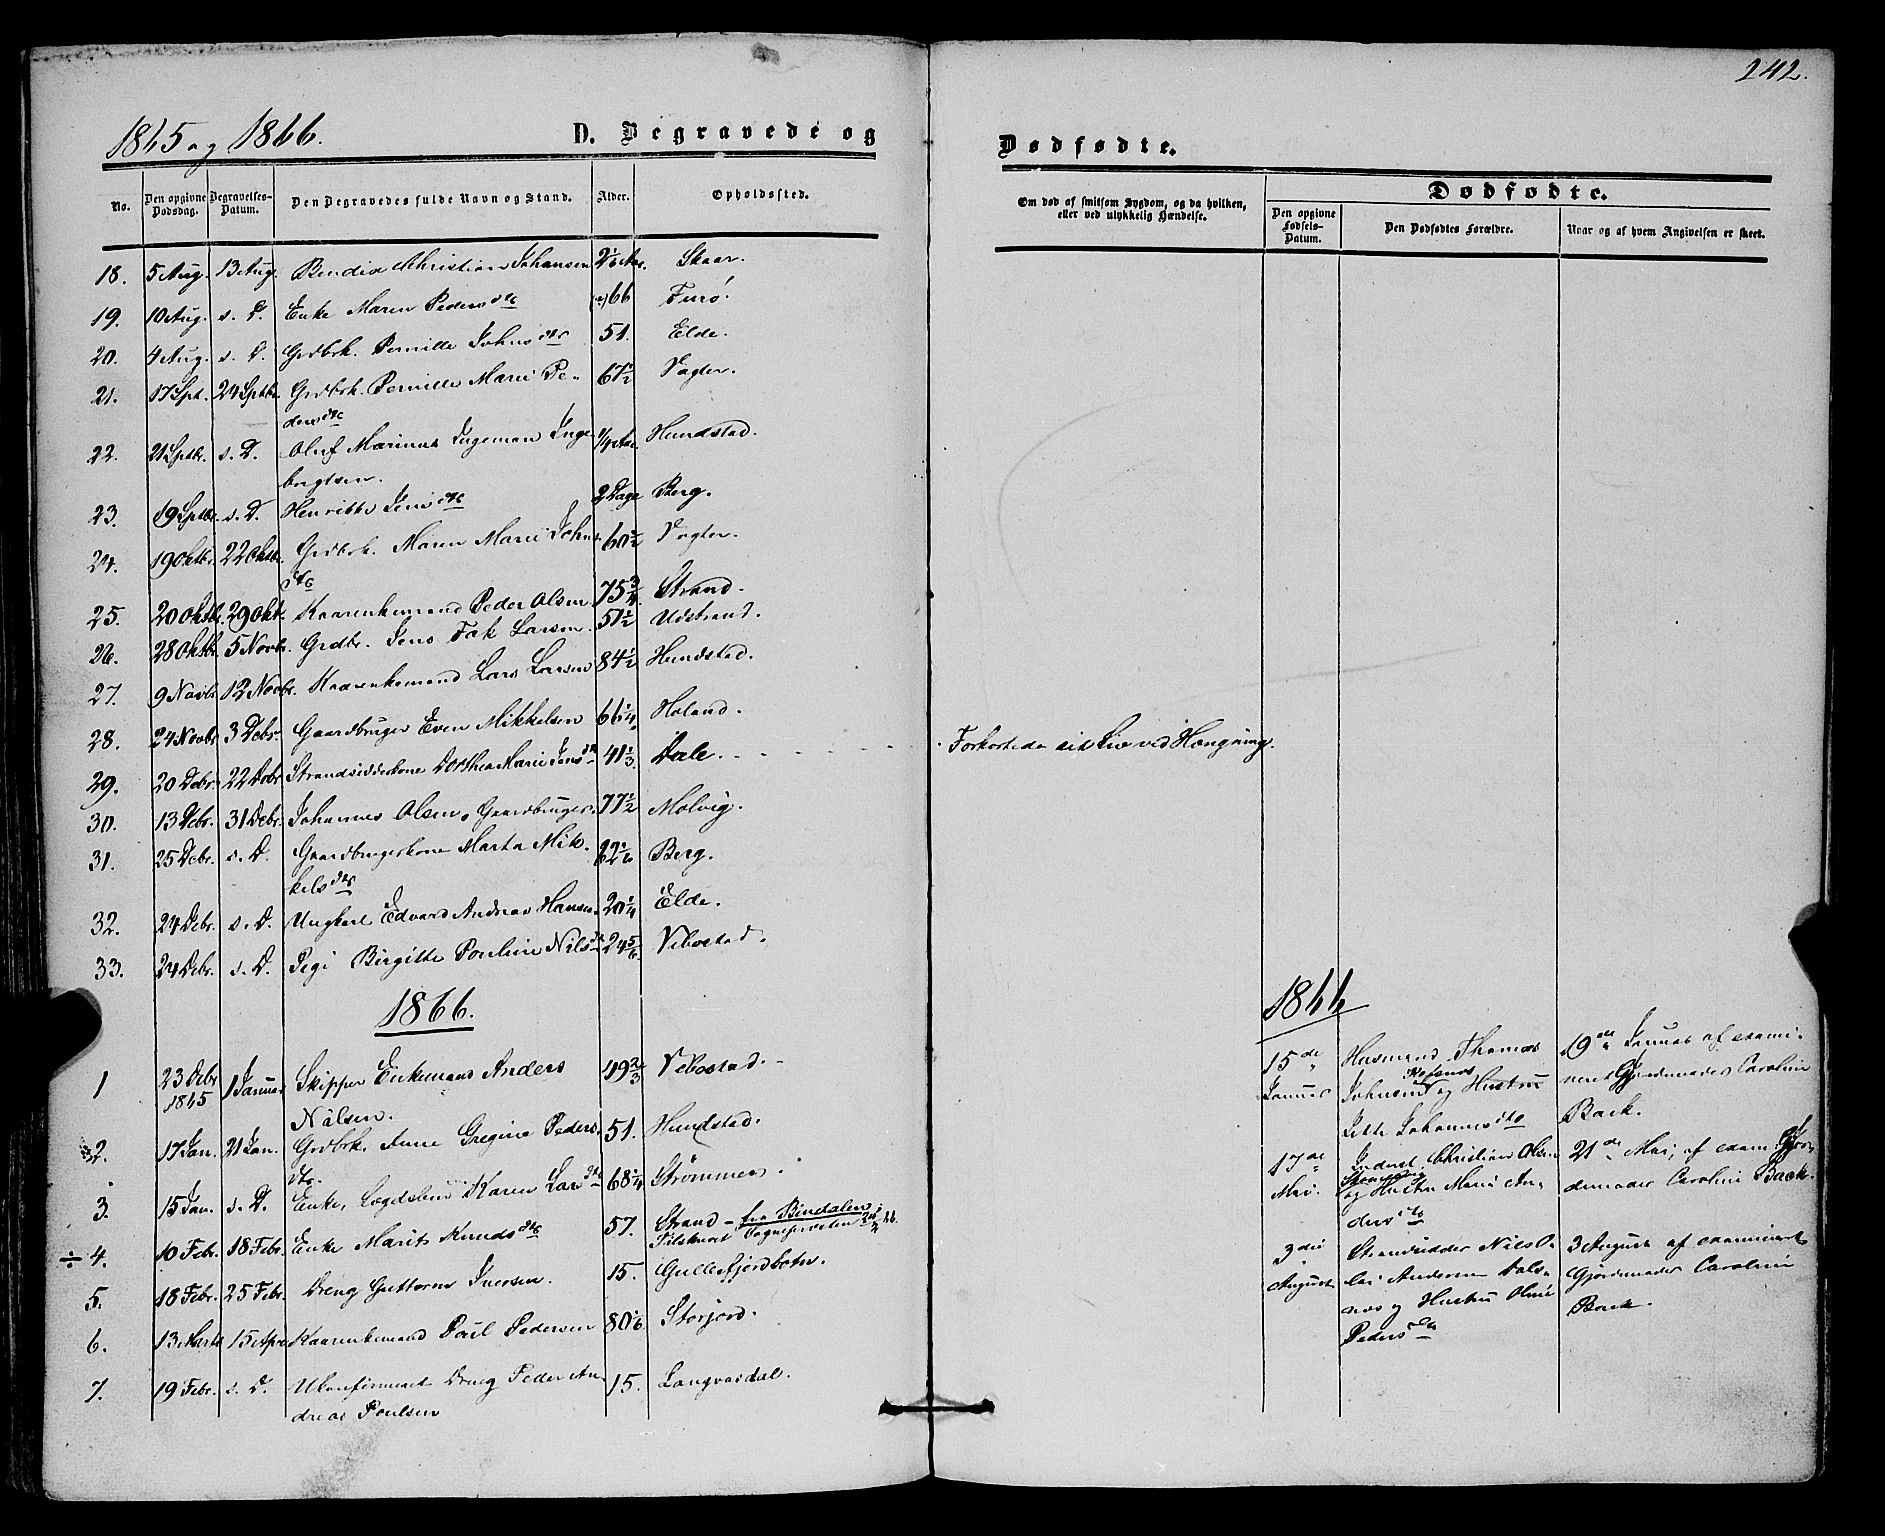 242.
1865 og 1866.
D. Begravede og
Dødfødte.
No.
Den opgivne Dødsdag.
Begravelses-Datum.
Den Begravedes fulde Navn og Stand.
Alder.
Opholdssted.
Om død af smitsom Sygdom, og da hvilken,
eller ved ulykkelig Hændelse.
Dødfødte.
Den opgivne Fødsels-Datum.
Den Dødfødtes Forældre.
Naar og af hvem Angivelsen er skeet.
18. 5 Aug. 13 Aug. Bendix Christian Johansen Skaar.
19. 10 Aug. s. D. Enke Maren Pedersdtr 66 Furø.
20. 4 Aug. s. D. Grdbrk. Pernille Johnsdtr 51. Elde.
21. 17 Spt. 24 Sptbr. Grdbrk. Pernille Marie Pe- 67½ Vagter.
dersdtr
22. 21 Sptbr. s. D. Oluf Marinus Ingeman Inge- ¼ Aar. Hundstad.
brigtsen.
23. 19 Sptbr. s. D. Henrikke Jensdtr 2 Dage Berg.
24. 19 Oktbr. 22 Oktbr. Grdbrk. Maren Marie Johns- 60½ Vagter.
dtr
25. 20 Oktbr. 29 Okt. Kaarenkemand Peder Olsen 75¾ Strand.
26. 28 Oktbr. 5 Novbr. Grdbr. Jens Fak Larsen. 51½ Udstrand.
27. 9 Novbr. 12 Novbr. Kaarenkemand Lars Larsen 84½ Hundstad.
28. 24 Novbr. 3 Debr. Gaardbruger Even Mikkelsen 66¼ Holand.
29. 20 Debr. 22 Debr. Strandsidderkone Dorthea Marie Jensdtr 41⅓ Dale.
Forkortede sit Liv ved Hængning.
30. 13 Debr. 31 Debr. Johannes Olsen, Gaardbruger. 77½ Molvig.
31. 25 Debr. s. D. Gaardbrugerkone Marta Mik- Berg.
kelsdtr
32. 24 Debr. s. D. Ungkarl Edvard Andreas Hansen. 20¼ Elde.
33. 24 Debr. s. D. Pige Birgitte Pouline Nilsdtr 24⅚ Vebostad.
1866.
1 23 Debr 1865 1 Januar Skipper Enkemand Anders 49⅔ Vebostad.
Nilsen.
2. 17 Jan. 21 Jan. Grdbrk. Anne Gregine Peders- 51. Hundstad.
dtr.
3. 15 Jan. s. D. Enke, Lægdslem Karen Larsdtr 68¼ Strømmen.
÷ 4. 10 Febr. 18 Febr. Enke Marit Knudsdtr 57. Strand - fra Bindalen
Tilskrevet Sognepræsten
5. 18 Febr. 25 Febr. Dreng Guttorm Iversen. 15. Gullesfjordbotn.
6. 13 Marts 15 Apr. Kaarenkemand Paul Pedersen 80⅙ Storjord.
7. 19 Febr. s. D. Ukonfirmeret Dreng Peder An- 15. Langvasdal.
dreas Poulsen
1866
15de Januar
Husmand Thomas
Johnsen og Hustru
Johannesdtr
19de Januar af exami-
neret Gjordemoder Caroline
Back.
17de Mai.
Inderst Christian Olsen
og Hustru Marie An-
dersdtr
21de Mai, af exam. Gjor-
demoder Caroline Back.
3die August
Strandsidder Nils O-
lai Andersen
og Hustru
Pedersdtr
3 August af examineret
Gjordemoder Caroline
Back.